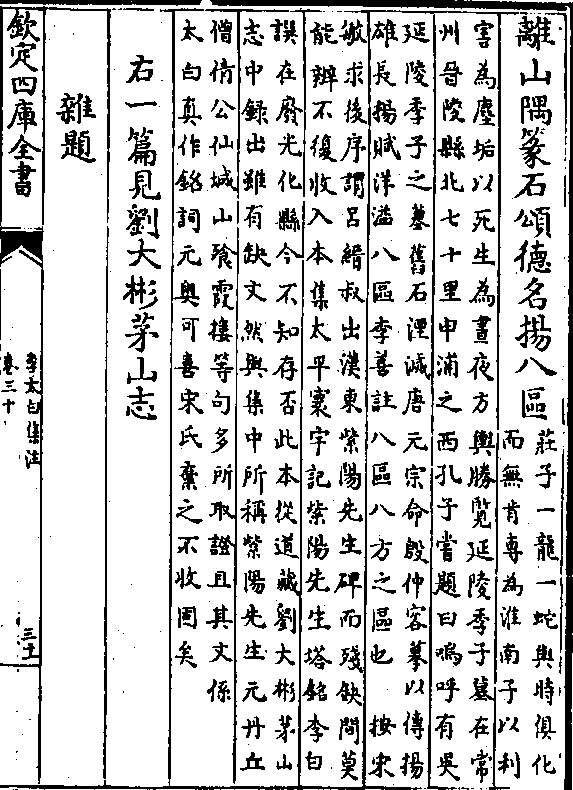 離山隅篆石頌德名揚八區
莊子一龍一蛇與時俱化
而無肯專為淮南子以利
害為塵垢以死生為晝夜方輿勝覽延陵季子墓在常
州晉陵縣北七十里申浦之西孔子嘗題曰嗚呼有吳
延陵季子之墓舊石湮滅唐元宗命殷仲容摹以傳揚
雄長揚賦洋溢八區李善註八區八方之區也 按宋
敏求後序謂呂縉叔出漢東紫陽先生碑而殘缺間莫
能辨不復收入本集太平寰宇記紫陽先生塔銘李白
譔在廢光化縣今不知存否此本從道藏劉大彬茅山
志中録出雖有缺文然與集中所稱紫陽先生元丹丘
僧倩公仙城山飱霞樓等句多所取證且其文係
太白真作銘詞元奧可喜宋氏棄之不收固矣
右一篇見劉大彬茅山志
雜題
欽定四庫全書
李太白集注
卷三十